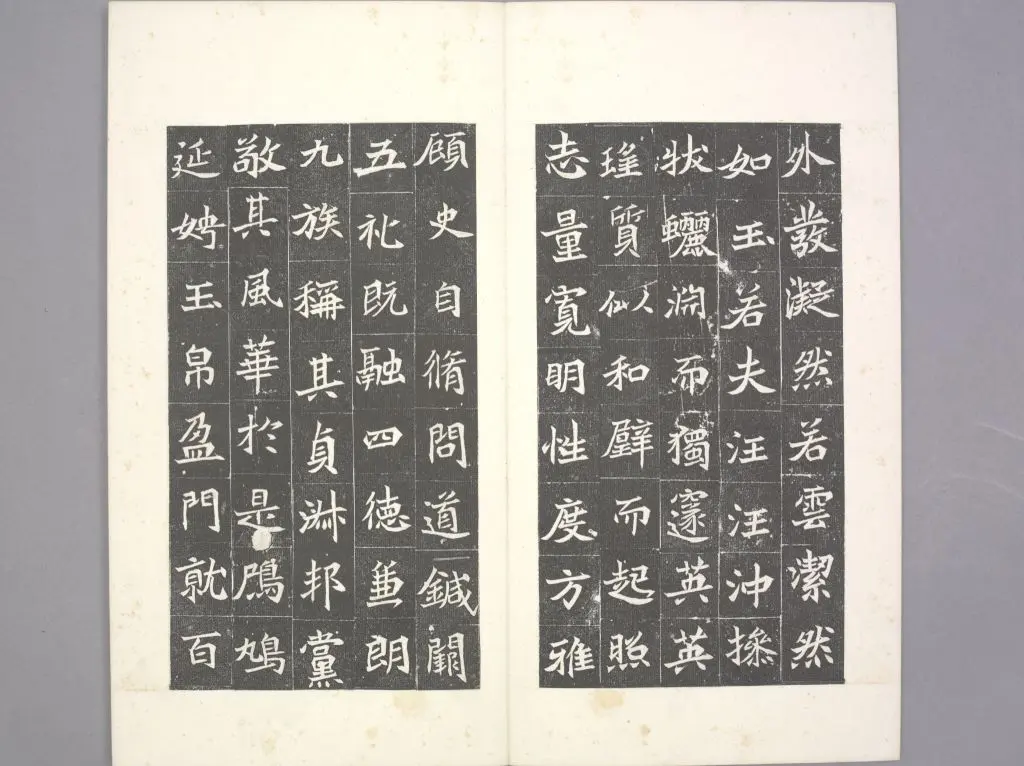 外發凝然若雲潔然
如玉若夫汪汪沖操
狀驪淵而獨邃英英
瑾質似和璧而起照
志量寬明性度方雅
顧史自脩問道鍼
五礼既融四德兼朗
九族稱其貞淑邦黨
敬其風華於是鴈鳩
延娉玉帛盈門就百